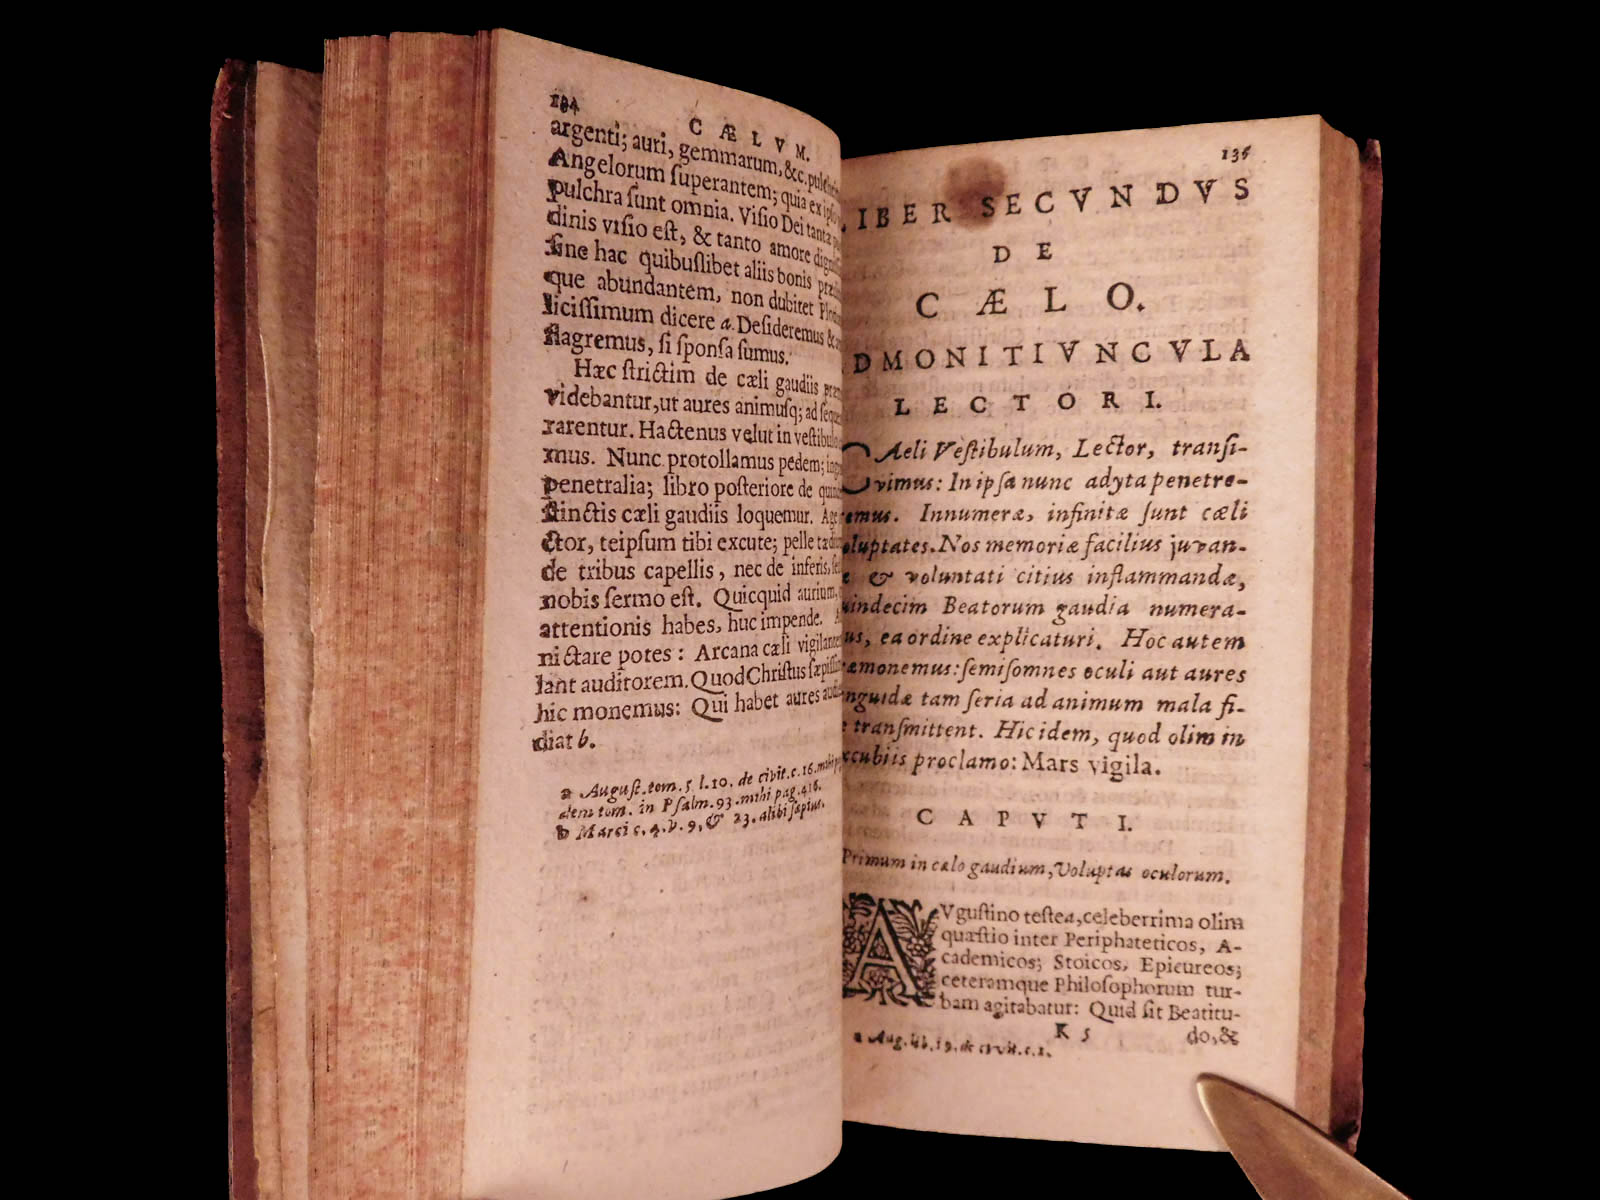 134
CÆLVM.
argenti; auri, gemmarum, &c. pulchri
Angelorum ſuperantem; quia ex ipſo
pulchra ſunt omnia. Viſio Dei tanta
dinis viſio eſt, & tanto amore
ſine hac quibuſlibet aliis bonis
que abundantem, non dubitet
liciſſimum dicere a. Deſideremus &
flagremus, ſi ſponſa ſumus.
Hæc ſtrictim de cæli gaudiis
videbantur, ut aures animuſq; ad
rarentur. Hactenus velut in veſtibulo
mus. Nunc protollamus pedem;
penetralia; libro poſteriore de
ſtinctis cæli gaudiis loquemur. Age
ctor, teipſum tibi excute; pelle
de tribus capellis, nec de inferis,
nobis ſermo eſt. Quicquid aurium,
attentionis habes, huc impende.
nictare potes: Arcana cæli
lant auditorem. Quod Chriſtus
hic monemus: Qui habet aures
diat b.
a Auguſt. tom. 5 l. 10. de civit. c. 16. mihi
dem tom. in Pſalm. 93. mihi pag. 416.
b Marci c. 4. v. 9, & 23. alibi ſæpius.
135
IBER SECVNDVS
DE
CÆLO.
DMONITIVNCVLA
LECTORI.
CAeli Veſtibulum, Lector, tranſi-
vimus: In ipſa nunc adyta penetre-
mus. Innumeræ, infinitæ ſunt cæli
oluptates. Nos memoriæ facilius juvan-
& voluntati citius inflammandæ,
uindecim Beatorum gaudia numera-
us, ea ordine explicaturi. Hoc autem
æmonemus: ſemiſomnes oculi aut aures
nguidæ tam ſeria ad animum mala fi-
tranſmittent. Hic idem, quod olim in
xcubiis proclamo: Mars vigila.
CAPVT I.
Primum in cælo gaudium, Voluptas oculorum.
AVguſtino teſte a, celeberrima olim
quæſtio inter Periphateticos, A-
cademicos; Stoicos, Epicureos;
ceteramque Philoſophorum tur-
bam agitabatur: Quid ſit Beatitu-
K 5
do, &
a Aug. lib. 19. de civit. c. 1.